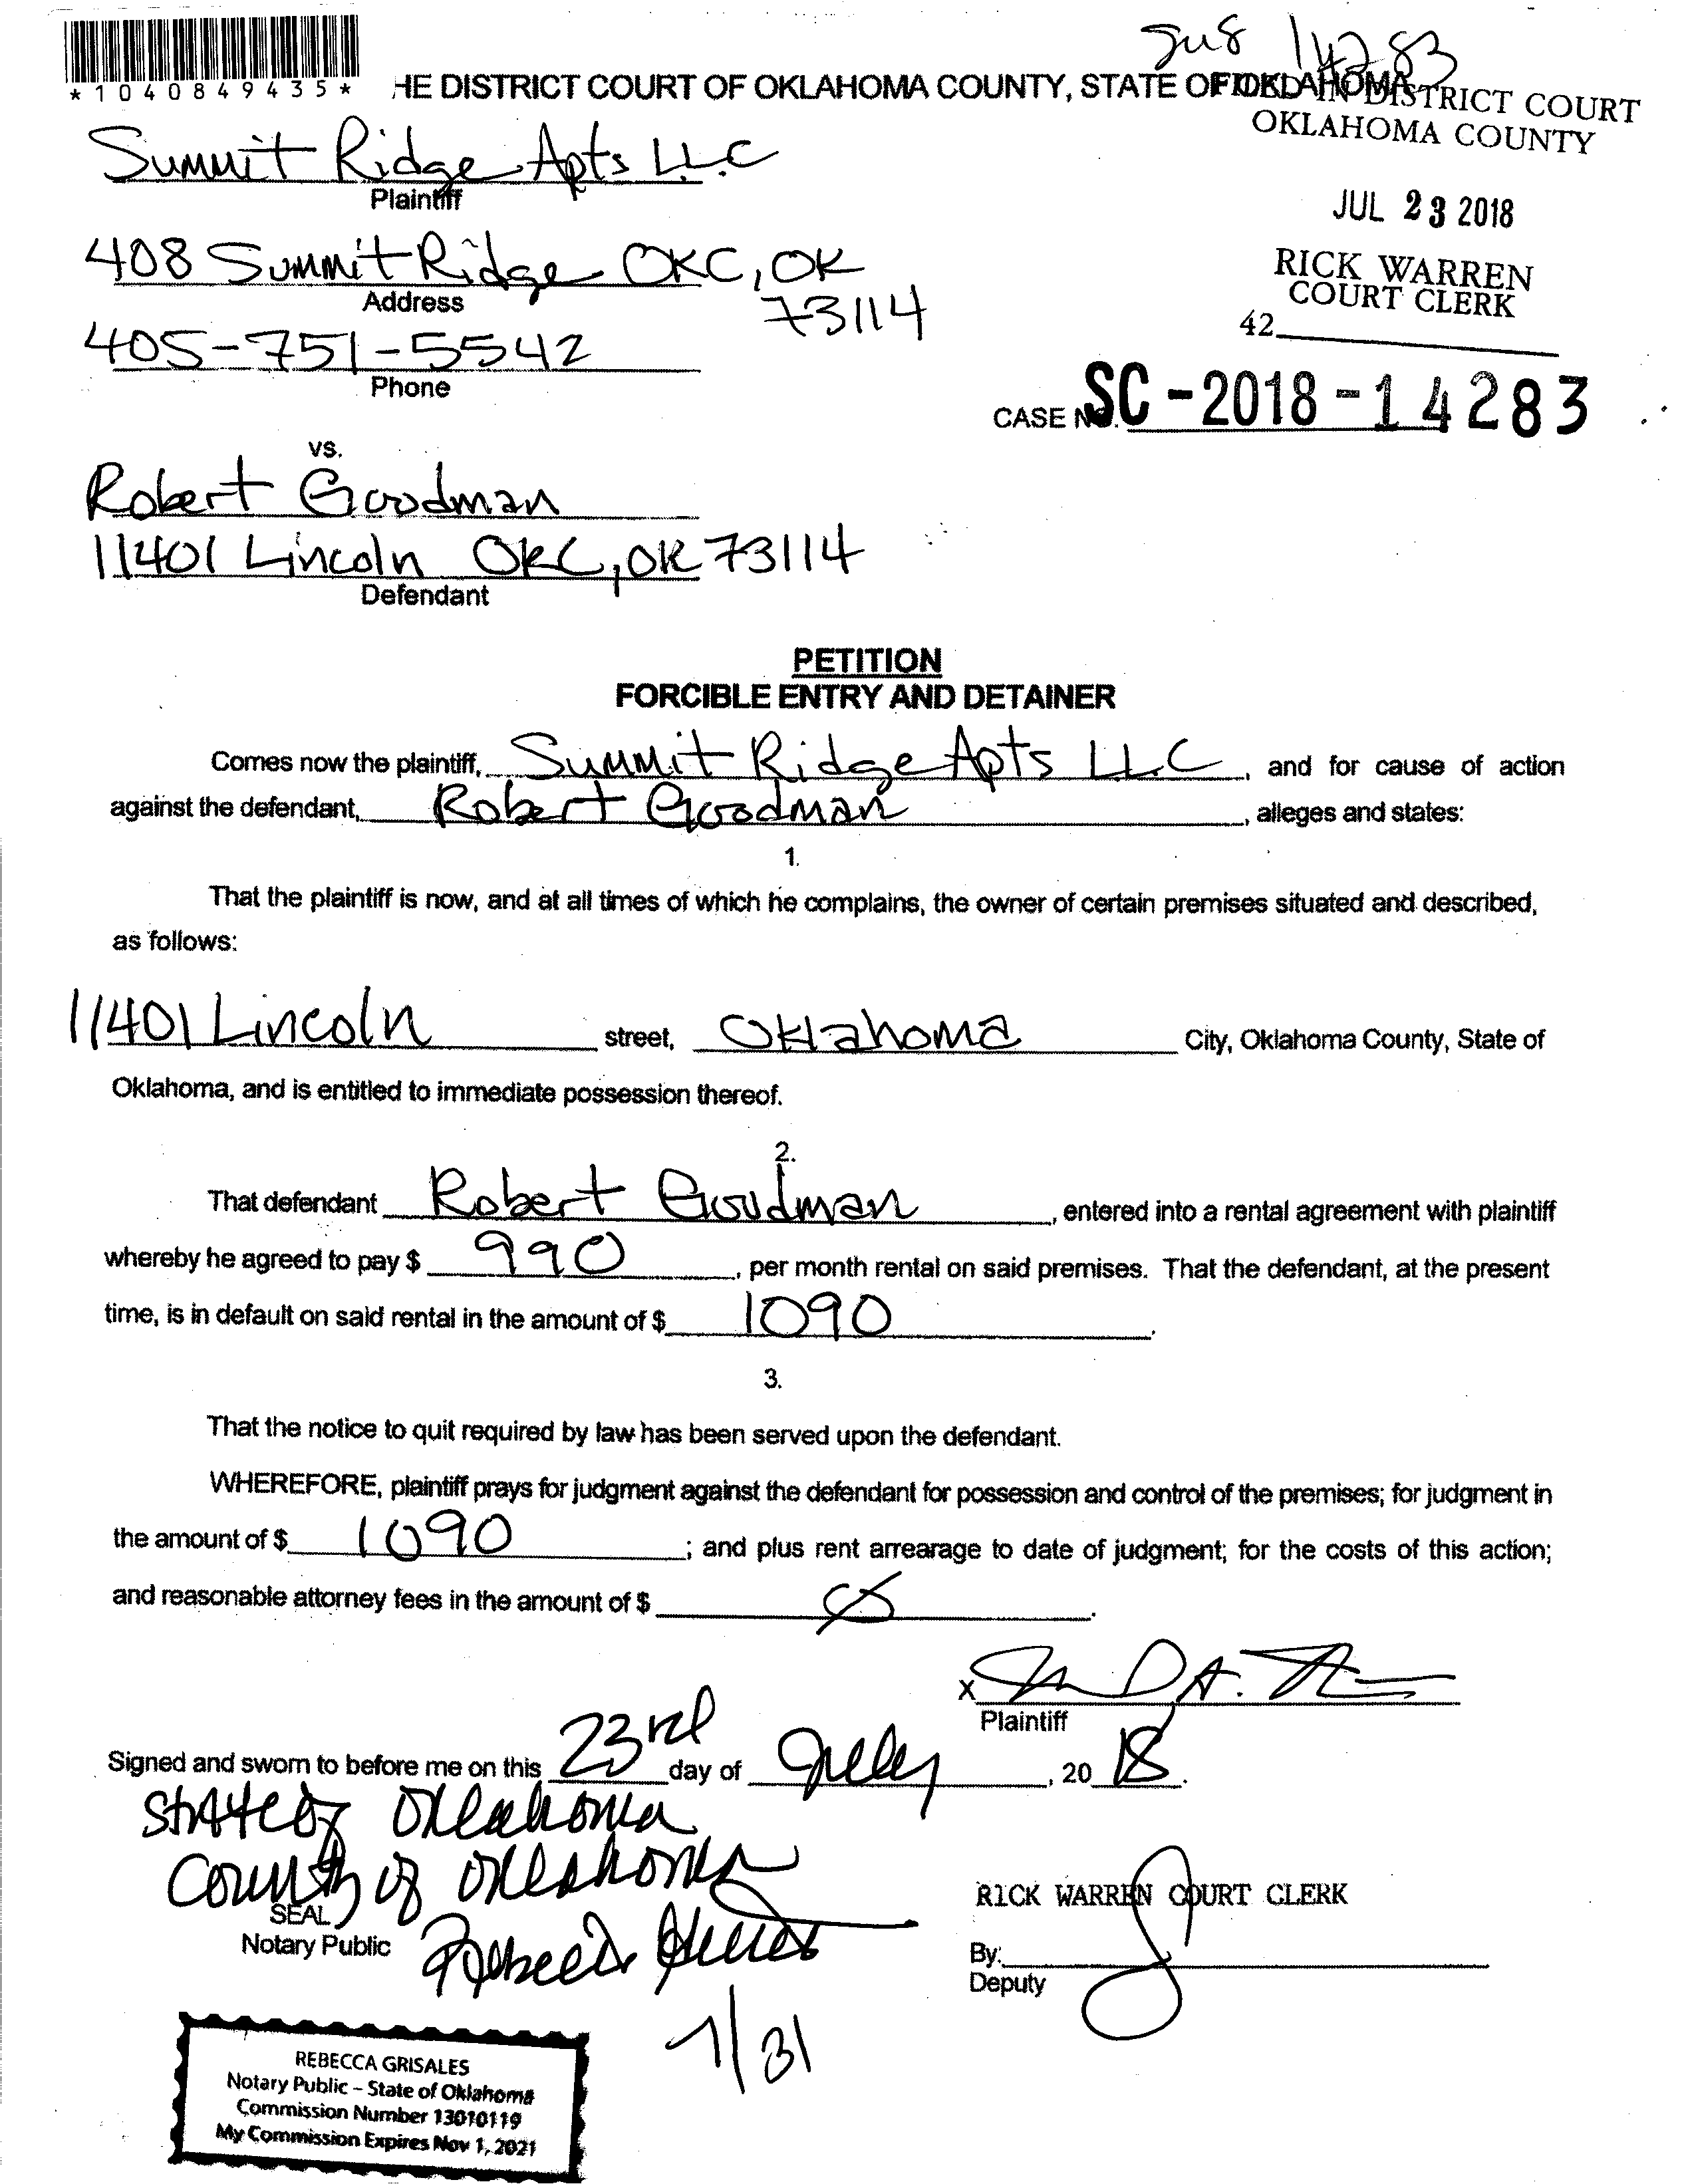 Jus 14283
*1040849435*
HE DISTRICT COURT OF OKLAHOMA COUNTY, STATE OF OKLAHOMA
FILED IN DISTRICT COURT
OKLAHOMA COUNTY
Summit Ridge Apts LLC
Plaintiff
JUL 23 2018
408 Summit Ridge OKC, OK
73114
Address
RICK WARREN
COURT CLERK
42
405-751-5542
Phone
CASE NO. SC-2018-14283
vs.
Robert Goodman
11401 Lincoln OKC, OK 73114
Defendant
PETITION
FORCIBLE ENTRY AND DETAINER
Comes now the plaintiff, Summit Ridge Apts LLC, and for cause of action
against the defendant, Robert Goodman, alleges and states:
1.
That the plaintiff is now, and at all times of which he complains, the owner of certain premises situated and described,
as follows:
11401 Lincoln street, Oklahoma City, Oklahoma County, State of
Oklahoma, and is entitled to immediate possession thereof.
2.
That defendant Robert Goodman, entered into a rental agreement with plaintiff
whereby he agreed to pay $ 990, per month rental on said premises. That the defendant, at the present
time, is in default on said rental in the amount of $ 1090.
3.
That the notice to quit required by law has been served upon the defendant.
WHEREFORE, plaintiff prays for judgment against the defendant for possession and control of the premises; for judgment in
the amount of $ 1090; and plus rent arrearage to date of judgment; for the costs of this action;
and reasonable attorney fees in the amount of $ Ø.
X
Plaintiff
Signed and sworn to before me on this 23rd day of July, 2018.
State of Oklahoma
County of Oklahoma
SEAL
Notary Public Rebecca Grisales
RICK WARREN COURT CLERK
By:
Deputy
7/31
REBECCA GRISALES
Notary Public – State of Oklahoma
Commission Number 13010119
My Commission Expires Nov 1, 2021